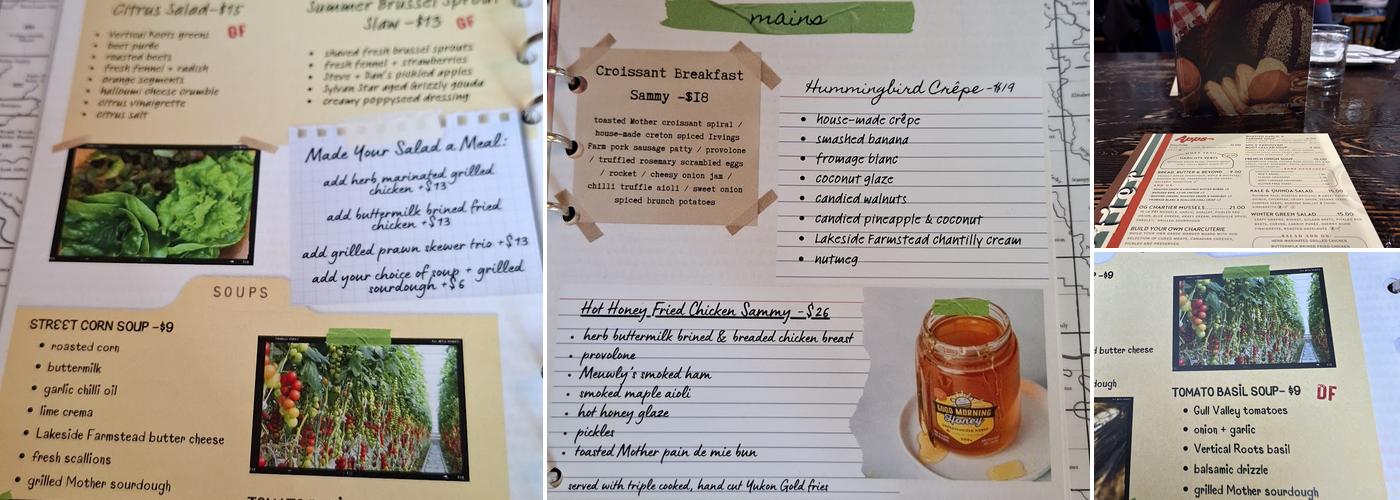 Citrus Salad-$15
Vertical Roots greens
GF
beet purée
roasted beets
fresh fennel + radish
orange segments
halloumi cheese crumble
citrus vinaigrette
citrus salt
Summer Brussel Sprout
Slaw -$13
GF
shaved fresh brussel sprouts
fresh fennel + strawberries
Steve + Dan's pickled apples
Sylvan Star aged Grizzly gouda
creamy poppyseed dressing
Made Your Salad a Meal:
add herb marinated grilled
chicken +$13
add buttermilk brined fried
chicken +$13
add grilled prawn skewer trio +$13
add your choice of soup + grilled
sourdough +$6
SOUPS
STREET CORN SOUP -$9
roasted corn
buttermilk
garlic chilli oil
lime crema
Lakeside Farmstead butter cheese
fresh scallions
grilled Mother sourdough
mains
Croissant Breakfast
Sammy -$18
toasted Mother croissant spiral /
house-made creton spiced Irvings
Farm pork sausage patty / provolone
/ truffled rosemary scrambled eggs
/ rocket / cheesy onion jam /
chilli truffle aioli / sweet onion
spiced brunch potatoes
Hummingbird Crêpe -$19
house-made crêpe
smashed banana
fromage blanc
coconut glaze
candied walnuts
candied pineapple & coconut
Lakeside Farmstead chantilly cream
nutmeg
Hot Honey Fried Chicken Sammy -$26
herb buttermilk brined & breaded chicken breast
provolone
Meuwly's smoked ham
smoked maple aioli
hot honey glaze
pickles
toasted Mother pain de mie bun
served with triple cooked, hand cut Yukon Gold fries
GOOD MORNING
Honey
Apps
HARICOTS VERTS
BREAD, BUTTER & BEYOND
OG CHARTIER MUSSELS 21.00
BUILD YOUR OWN CHARCUTERIE
FRENCH ONION SOUP
KALE & QUINOA SALAD 15.00
WINTER GREEN SALAD 15.00
SALAD ADD ONS
HERB MARINATED GRILLED CHICKEN
-$9
d butter cheese
dough
TOMATO BASIL SOUP- $9
DF
Gull Valley tomatoes
onion + garlic
Vertical Roots basil
balsamic drizzle
grilled Mother sourdough